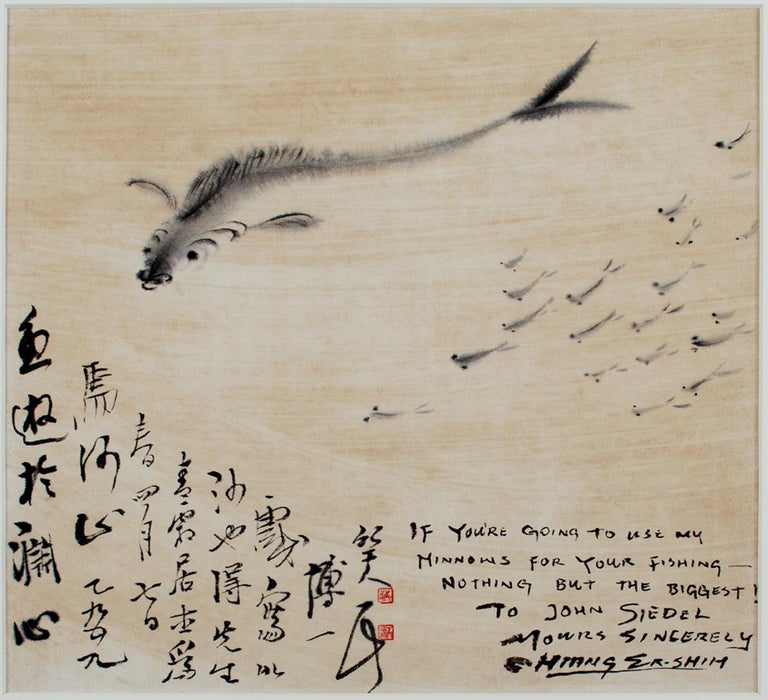 魚遊於淵心
四月七日
居士為
沙也得先生
戲寫此
博一
笑
IF YOU'RE GOING TO USE MY
MINNOWS FOR YOUR FISHING —
NOTHING BUT THE BIGGEST!
TO JOHN SIEDEL
YOURS SINCERELY
HUANG ER-SHIH